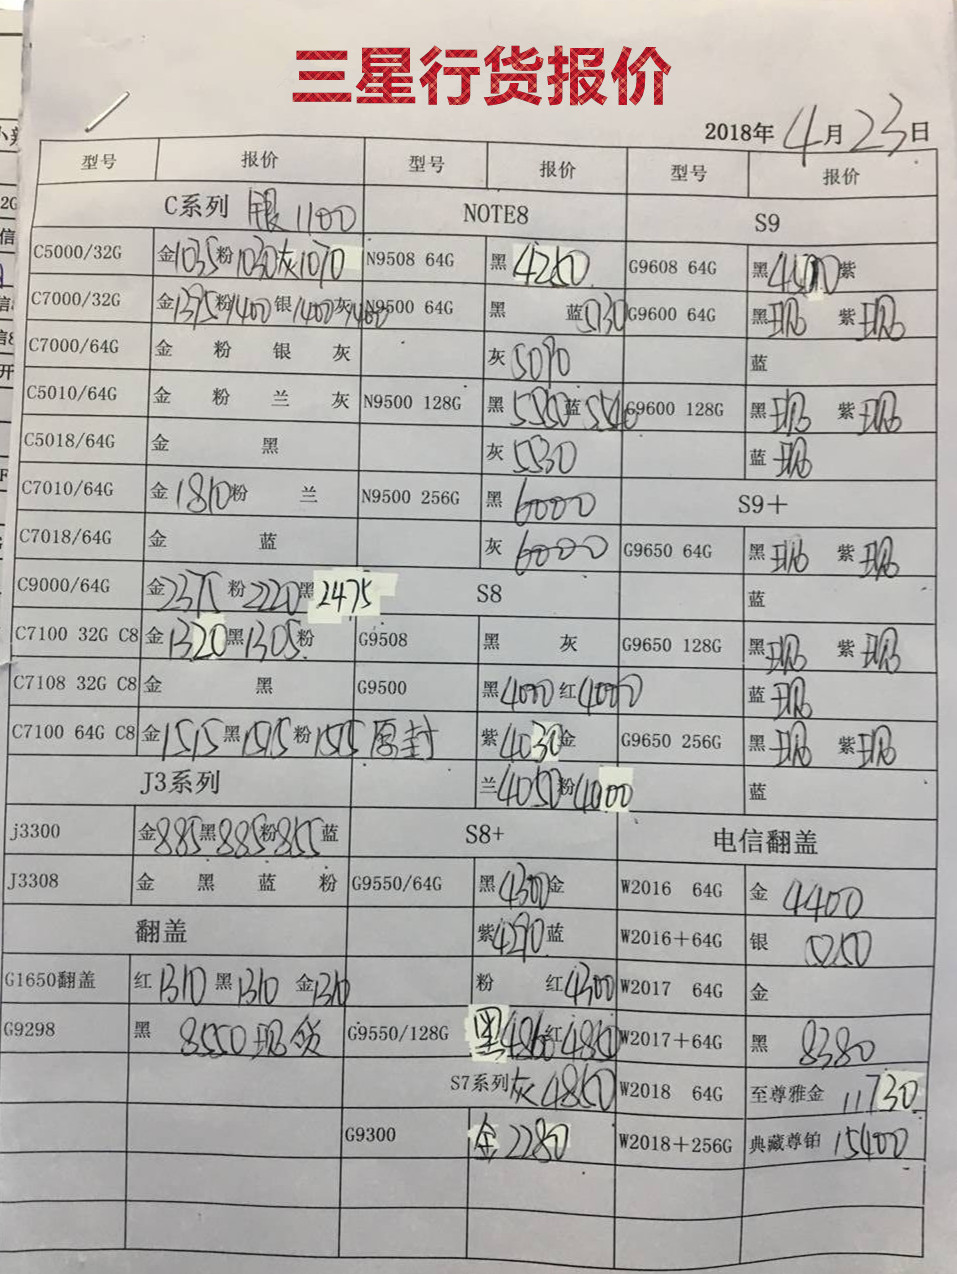 三星行货报价
2018年4月23日
型号 报价 型号 报价 型号 报价
C系列 银1100 NOTE8 S9
C5000/32G 金1035粉1030灰1070 N9508 64G 黑 4250 G9608 64G 黑 紫
C7000/32G 金1375粉1400银1400灰1400 N9500 64G 黑 蓝5130 G9600 64G 黑现 紫现
C7000/64G 金 粉 银 灰 灰5090 蓝
C5010/64G 金 粉 兰 灰 N9500 128G 黑 蓝 G9600 128G 黑现 紫现
C5018/64G 金 黑 灰5530 蓝现
C7010/64G 金1810粉 兰 N9500 256G 黑6000 S9+
C7018/64G 金 蓝 灰6000 G9650 64G 黑现 紫现
C9000/64G 金2375粉2220黑2475 S8 蓝
C7100 32G C8 金1320黑1305粉 G9508 黑 灰 G9650 128G 黑现 紫现
C7108 32G C8 金 黑 G9500 黑4000红4000 蓝现
C7100 64G C8 金1515黑1515粉1515原封 紫4030金 G9650 256G 黑现 紫现
J3系列 兰4050粉4000 蓝
j3300 金885黑885粉855蓝 S8+ 电信翻盖
J3308 金 黑 蓝 粉 G9550/64G 黑4300金 W2016 64G 金 4400
翻盖 紫4290蓝 W2016+64G 银
G1650翻盖 红1310 黑1310 金1310 粉 红4300 W2017 64G 金
G9298 黑 8550现货 G9550/128G 黑4860红4860 W2017+64G 黑 8380
S7系列 灰4860 W2018 64G 至尊雅金 11730
G9300 金2280 W2018+256G 典藏尊铂 15400